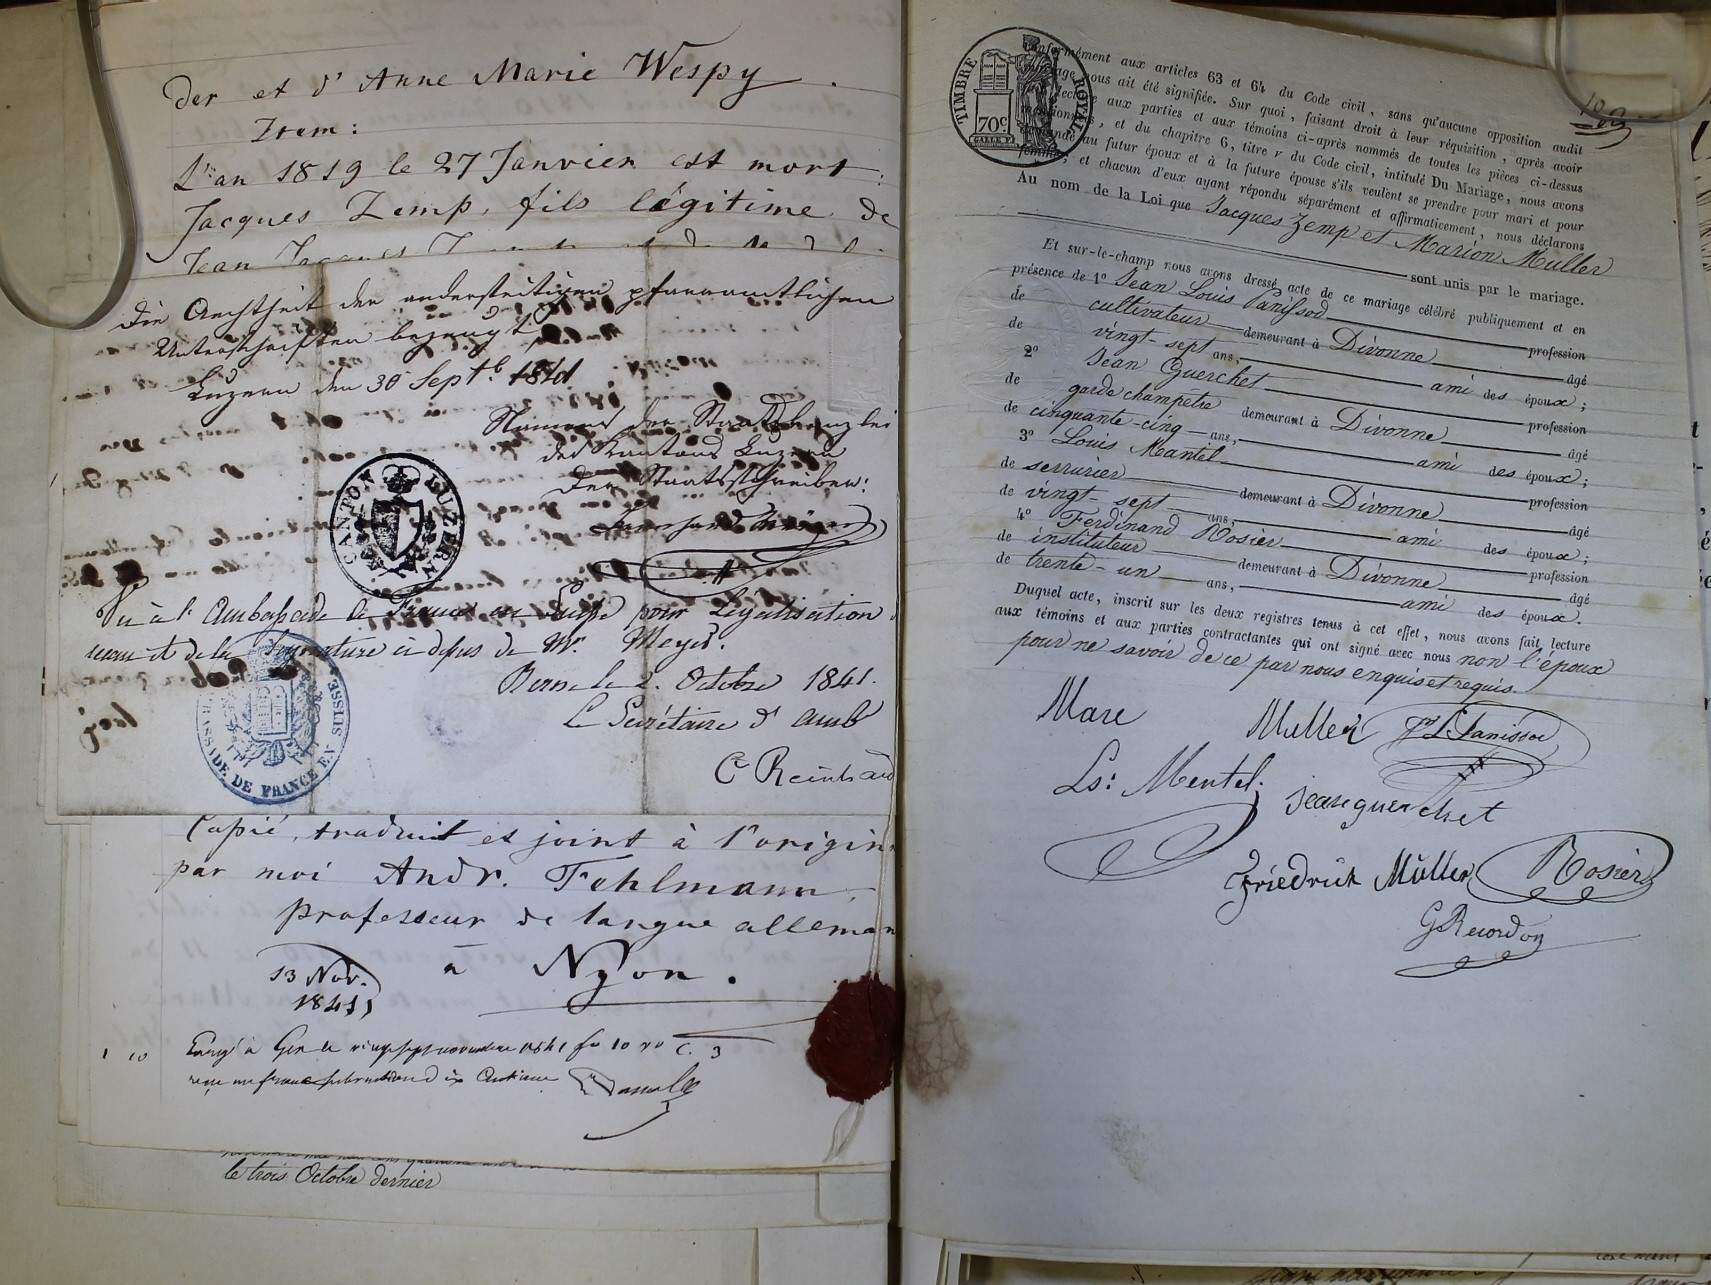 der et d'Anne Marie Wespy.
Item:
L'an 1819 le 27 Janvier est mort:
Jacques Zemp, fils légitime de
Jean Jacques
Die Aechtheit der anderseitigen pfarramtlichen
Unterschriften bezeugt
Luzern den 30 Sept.b 1841
Namens der Staatskanzlei
des Kantons Luzern
Der Staatsschreiber:
CANTON LUZERN
Vu à l'Ambassade de France en Suisse pour légalisation
de la Signature ci dessus de Mr. Meyer.
Berne le 2. Octobre 1841.
Le Secrétaire d'Amb
AMBASSADE DE FRANCE EN SUISSE
Cte Reinhard
Copié, traduit et joint à l'origin
par moi Andr. Fehlmann,
professeur de langue alleman
13 Nov. à Nyon.
1841
1 10 à Gex le vingt sept novembre 1841 fo 10 ro C. 3
le trois Octobre dernier
TIMBRE ROYAL
70c
10
Conformément aux articles 63 et 64 du Code civil, sans qu'aucune opposition audit
mariage nous ait été signifiée. Sur quoi, faisant droit à leur réquisition, après avoir
fait lecture aux parties et aux témoins ci-après nommés de toutes les pièces ci-dessus
mentionnées, et du chapitre 6, titre v du Code civil, intitulé Du Mariage, nous avons
demandé au futur époux et à la future épouse s'ils veulent se prendre pour mari et pour
femme, et chacun d'eux ayant répondu séparément et affirmativement, nous déclarons
Au nom de la Loi que Jacques Zemp et Marion Muller
sont unis par le mariage.
Et sur-le-champ nous avons dressé acte de ce mariage célébré publiquement et en
présence de 1º Jean Louis Panissod profession
de cultivateur demeurant à Divonne âgé
de vingt-sept ans, ami des époux;
2º Jean Guerchet profession
de garde champetre demeurant à Divonne âgé
de cinquante-cinq ans, ami des époux;
3º Louis Mantel profession
de serrurier demeurant à Divonne âgé
de vingt-sept ans, ami des époux;
4º Ferdinand Rosier profession
de instituteur demeurant à Divonne âgé
de trente-un ans, ami des époux.
Duquel acte, inscrit sur les deux registres tenus à cet effet, nous avons fait lecture
aux témoins et aux parties contractantes qui ont signé avec nous non l'époux
pour ne savoir de ce par nous enquis et requis.
Mare Muller JL Panissod
Ls: Mentel. Jean guerchet
Friedrich Müller Rosier
G Recordon